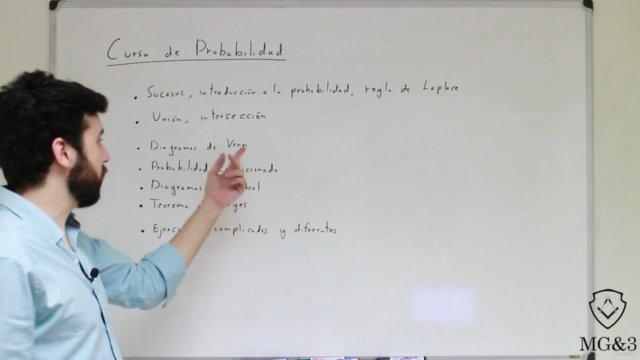 Curso de Probabilidad.
• Sucesos, introducción a la probabilidad, regla de Laplace
• Unión, intersección
• Diagramas de Venn
• Probabilidad
• Diagramas
• Teorema
• complicados y diferentes
MG&3